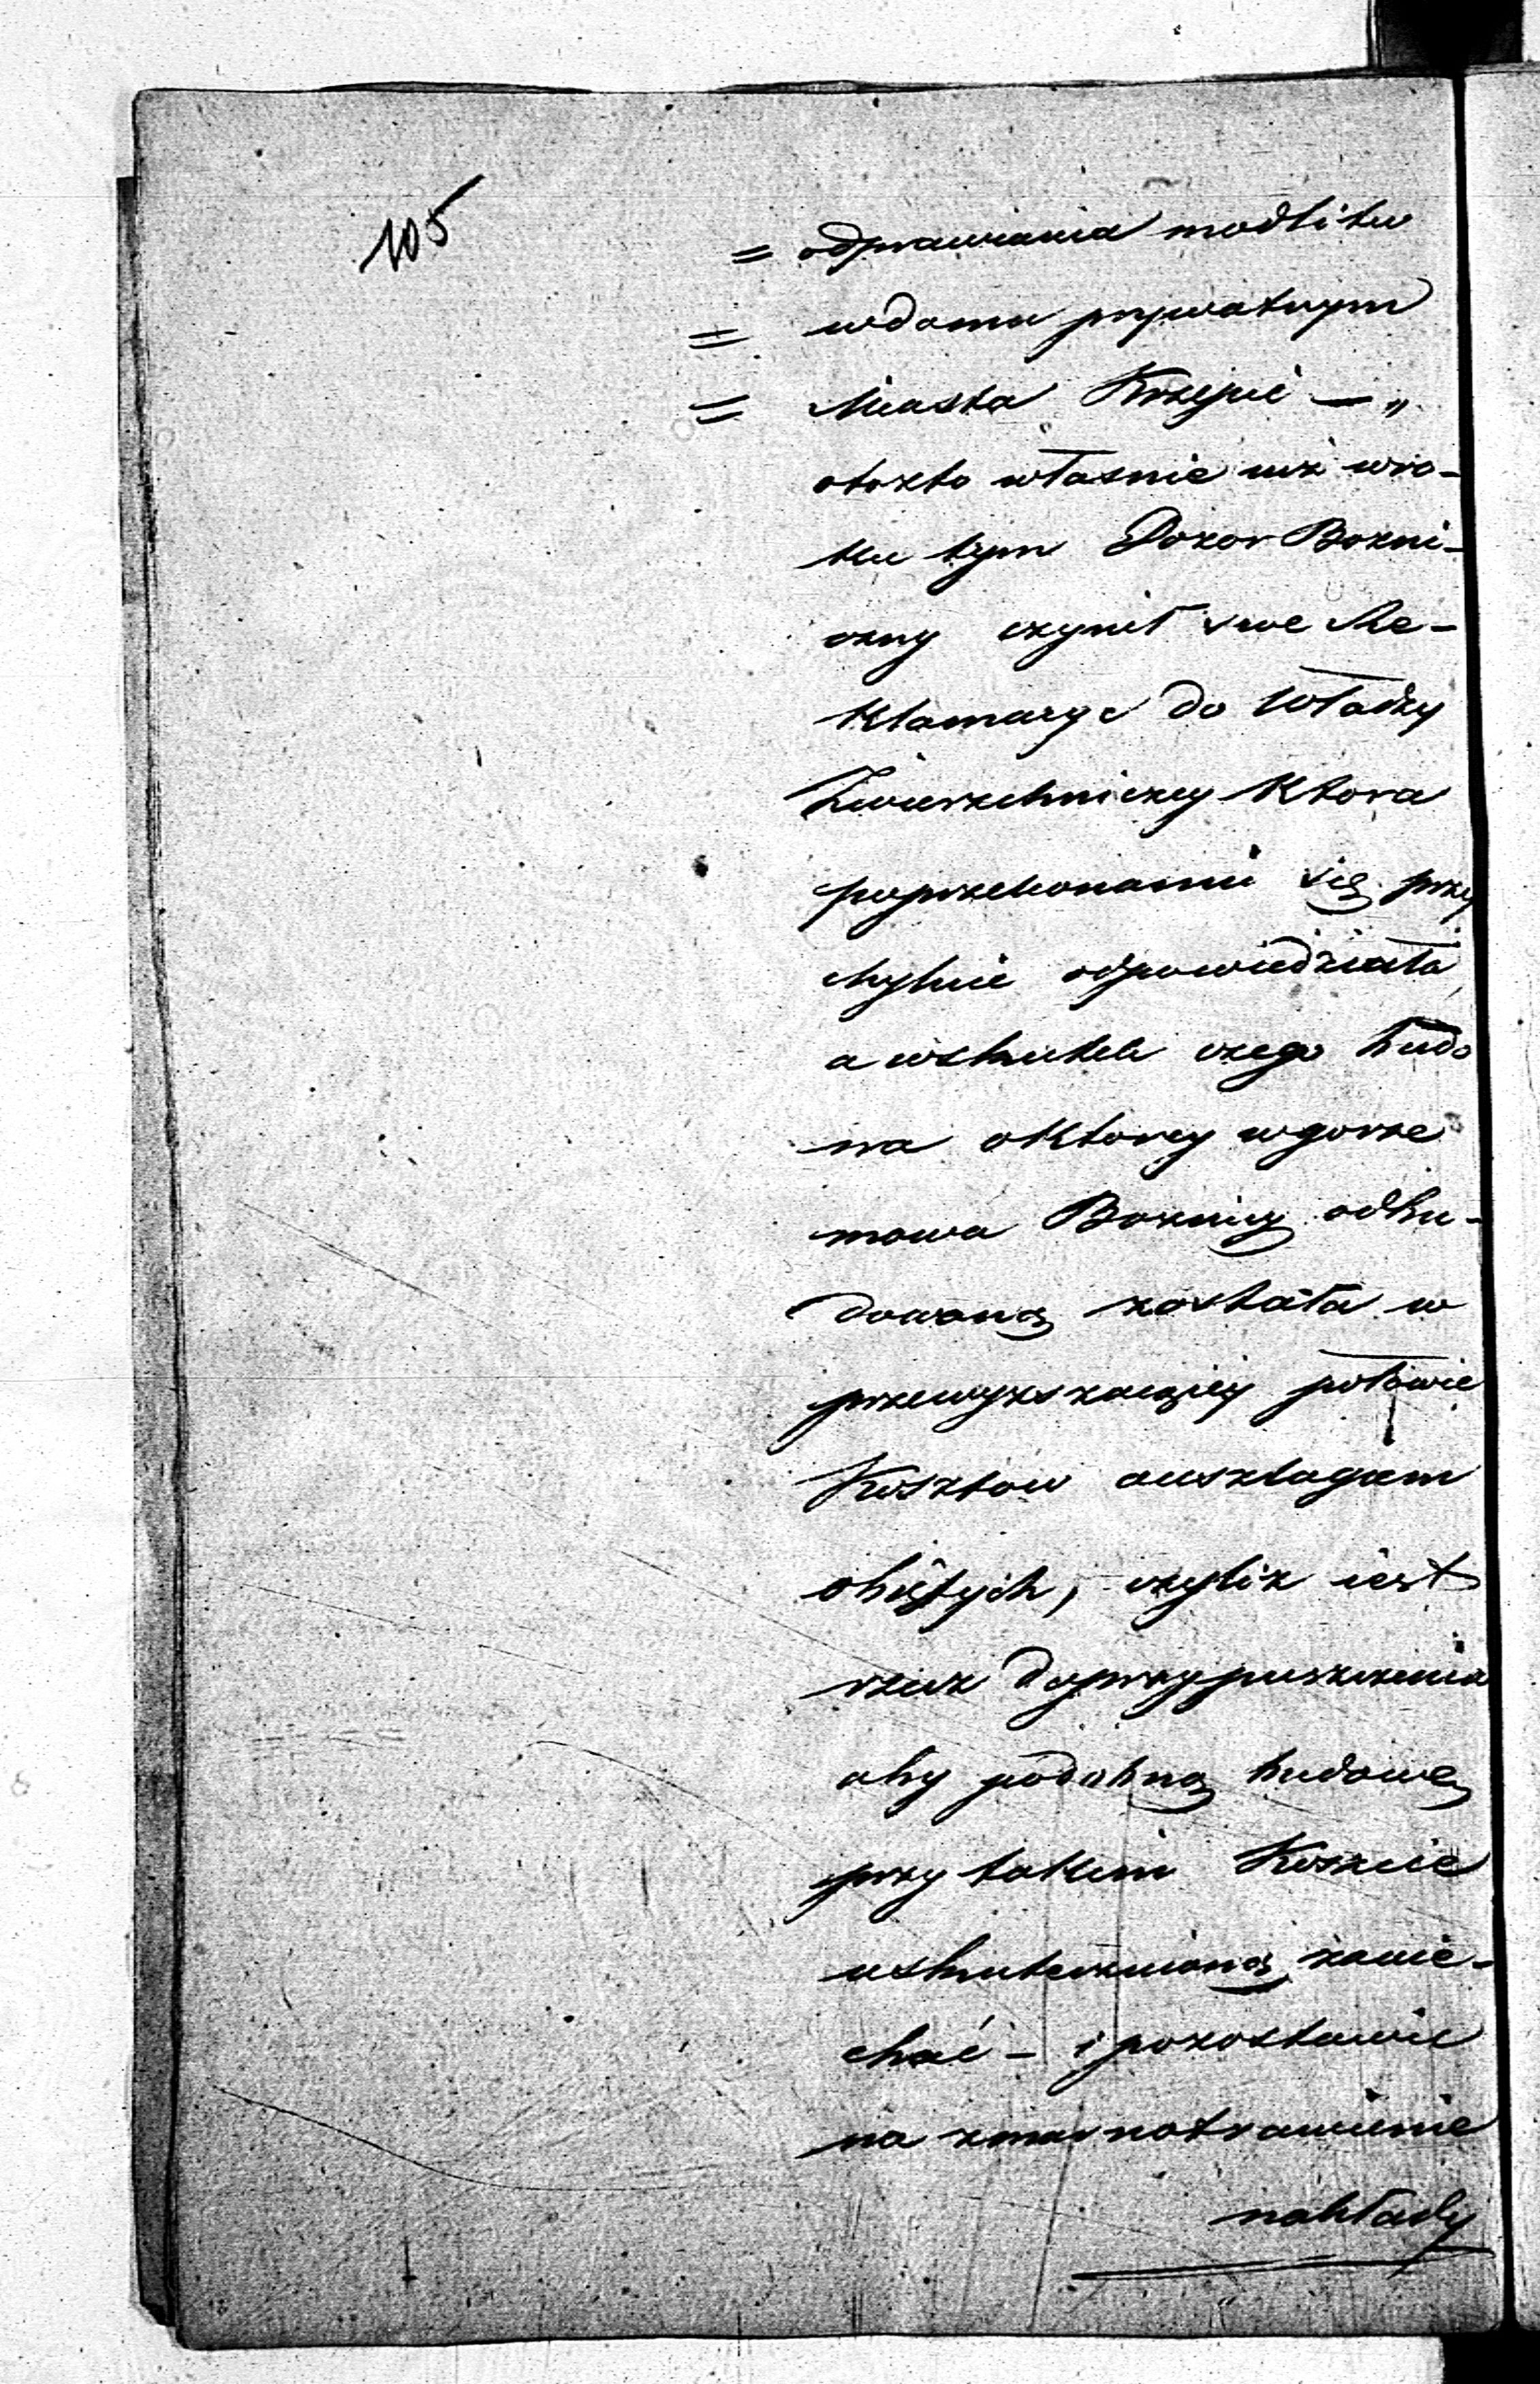 105
= odprawiania modlitw
= w domu prywatnym
= Miasta Krzepic — „
otożto własnie już wro-
ku tym Dozor Bozni-
czny czynił swe Re-
klamacye do Władzy
Zwierzchniczey Ktora
poprzekonaniu się przy
chylnie odpowiedziała,
a wskutek czego budo
wa oktorey wgorze
mowa Boznicy odbu-
dowaną została w
przewyzszaiącey połowie
Kosztow
obiętych, czyliz iest
rzecz doprzypuszczenia
aby podobną budowę
przy takim Koszcie
uskutecznioną zanie-
chać – i pozostawic
na zmarnotrawienie
nakłady